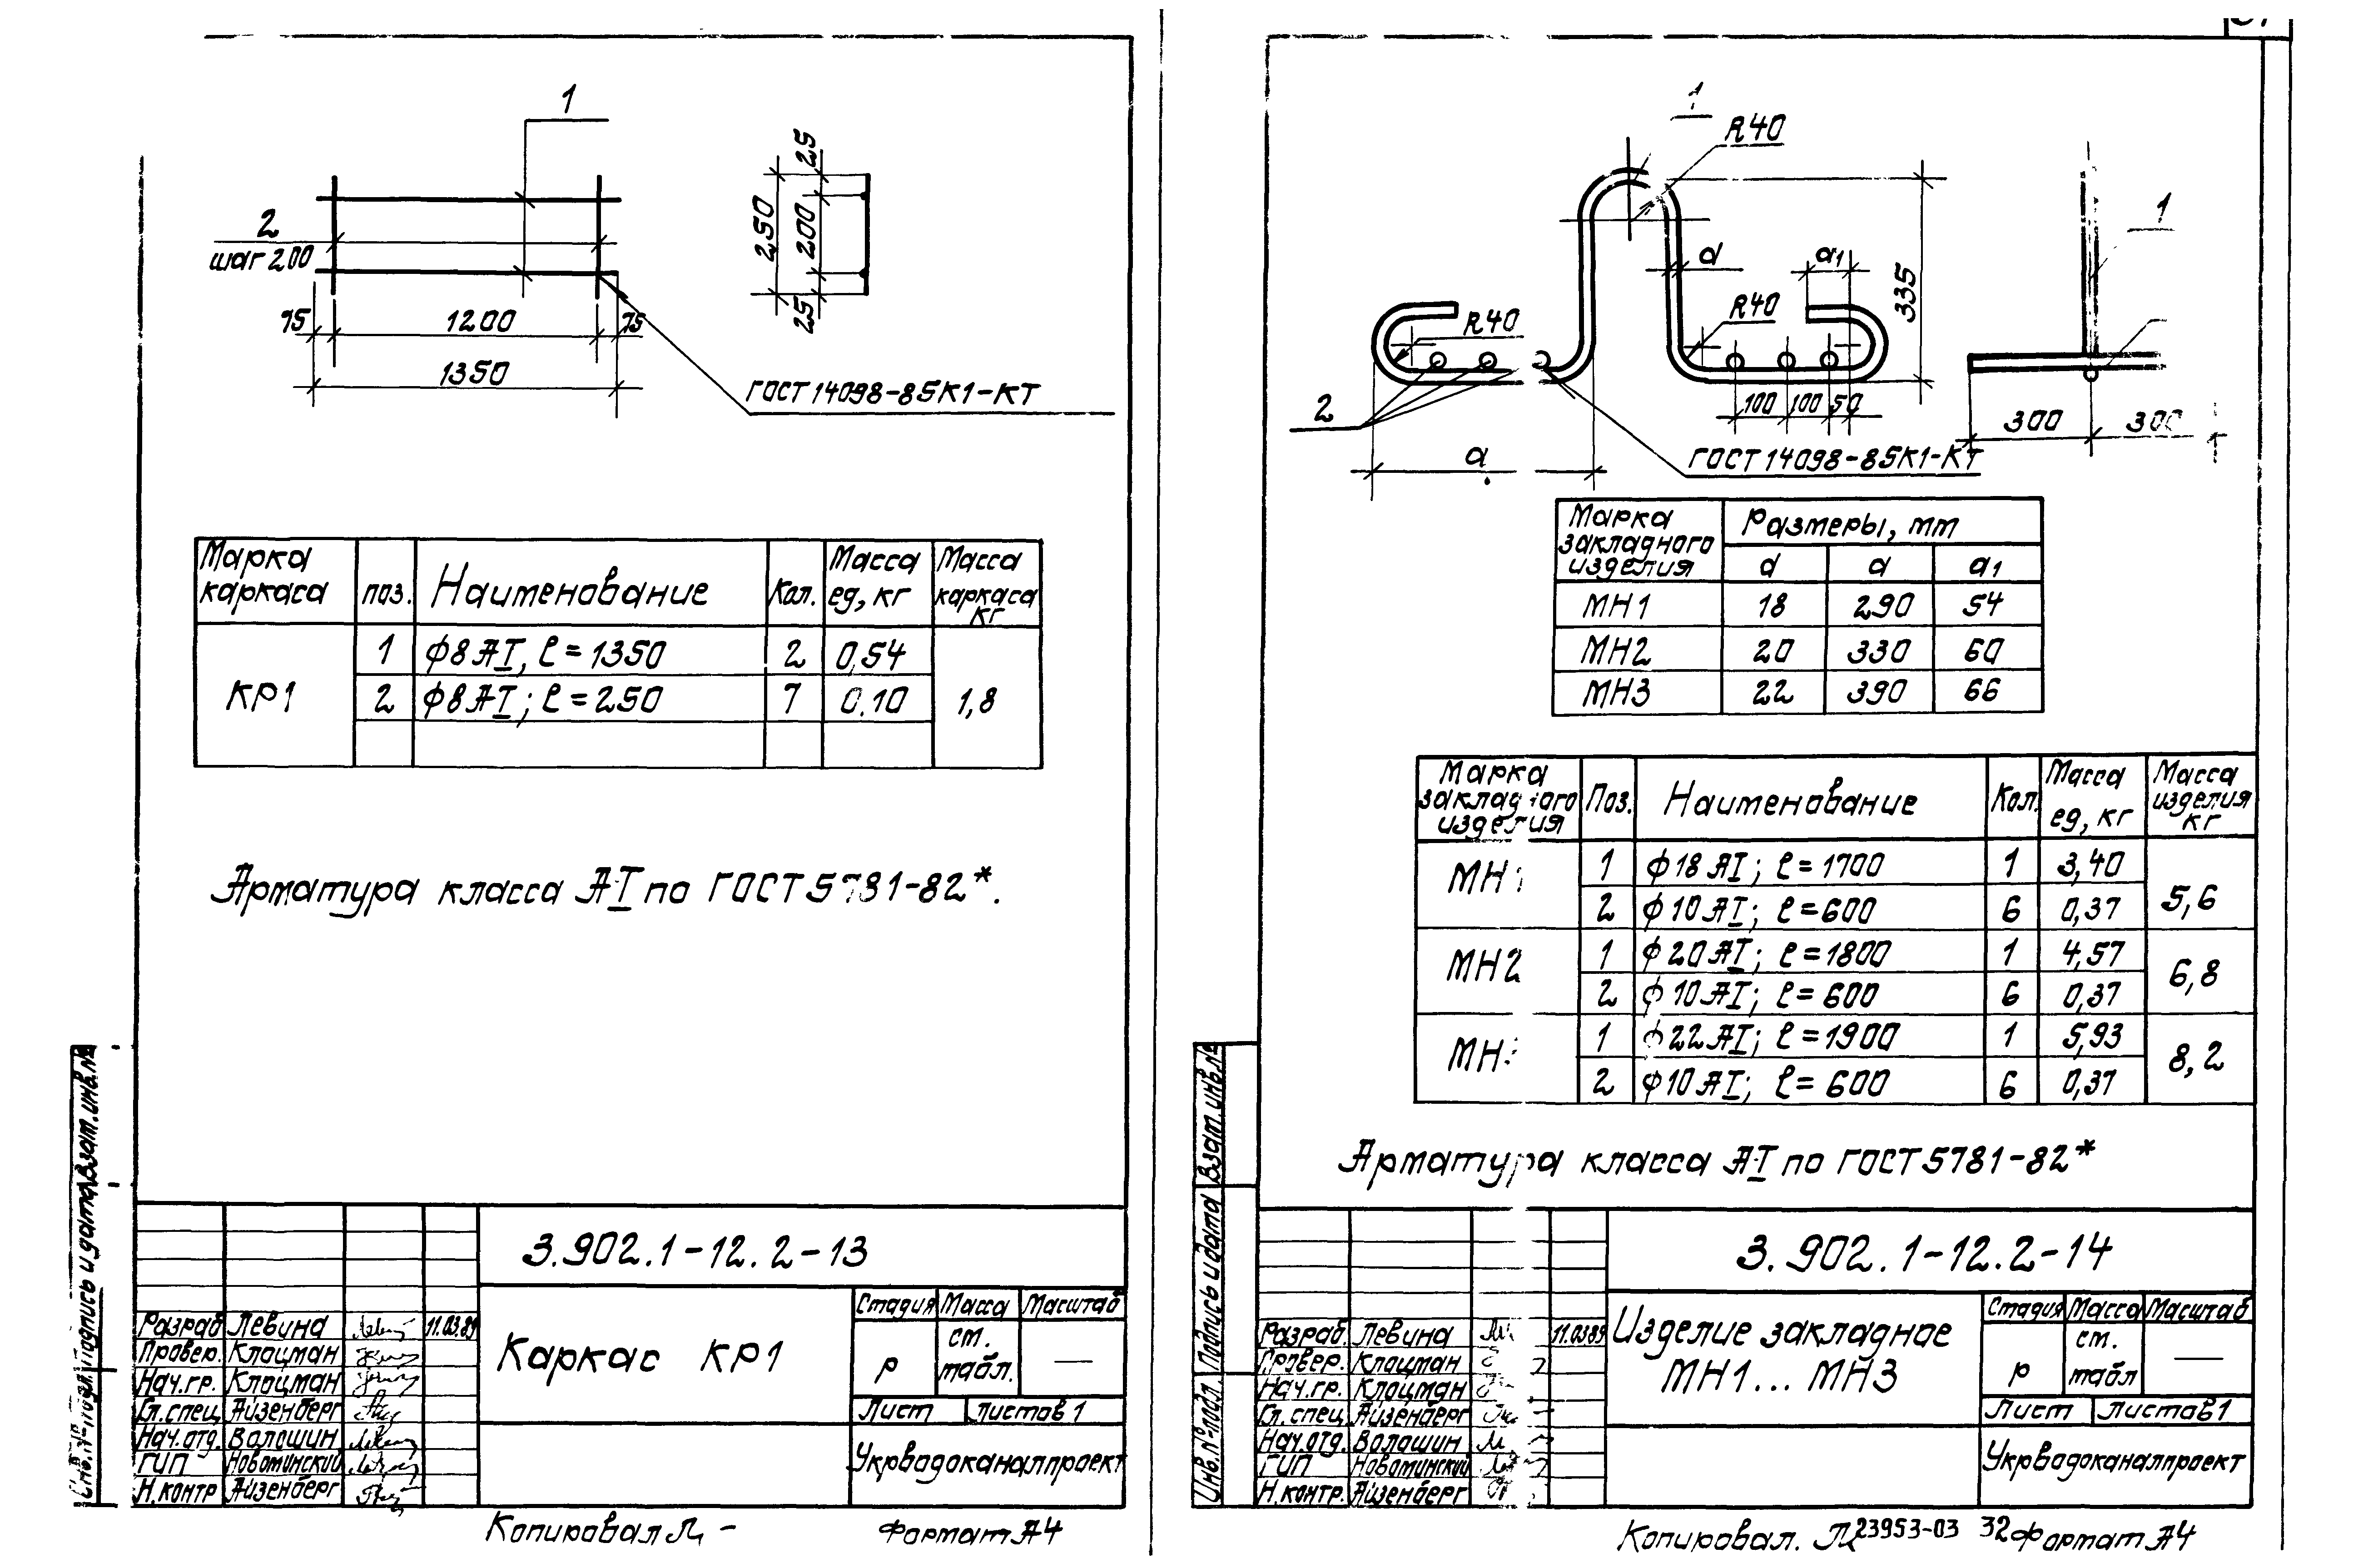 1
2
шаг 200
75 1200 75
1350
250
25 200 25
ГОСТ 14098-85К1-КТ
Марка каркаса поз. Наименование Кол. Масса ед, кг Масса каркаса кг
КР1
1 ф8 АI, ℓ=1350 2 0,54
2 ф8 АI; ℓ=250 7 0.10
1,8
Арматура класса АI по ГОСТ 5781-82*.
Взам. инв.№
Подпись и дата
3.902.1-12.2-13
Каркас КР1
Стадия Масса Масштаб
р ст. табл. —
Лист Листов 1
Укрводоканалпроект
Разраб Левина 11.03.89
Провер. Клоцман
Нач.гр. Клоцман
Гл.спец Айзенберг
Нач.отд. Волошин
ГИП Новоминский
Н.контр Айзенберг
Копировал
Формат А4
1
R40
d
a1
335
R40
R40
2
100 100 50
a
ГОСТ 14098-85К1-КТ
1
300 300
Марка закладного изделия Размеры, мм
d a a1
МН1 18 290 54
МН2 20 330 60
МН3 22 390 66
Марка закладного изделия Поз. Наименование Кол. Масса ед, кг Масса изделия кг
МН
1 ф18 АI; ℓ=1700 1 3,40
2 ф10 АI; ℓ=600 6 0,37
5,6
МН2
1 ф20 АI; ℓ=1800 1 4,57
2 ф10 АI; ℓ=600 6 0,37
6,8
МН
1 ф22 АI; ℓ=1900 1 5,93
2 ф10 АI; ℓ=600 6 0,37
8,2
Арматура класса АI по ГОСТ 5781-82*
Взам. инв.№
Подпись и дата
Инв.№подл.
3.902.1-12.2-14
Изделие закладное
МН1... МН3
Стадия Масса Масштаб
р ст. табл —
Лист Листов 1
Укрводоканалпроект
Разраб. Левина 11.03.89
Провер. Клоцман
Нач.гр. Клоцман
Гл. спец. Айзенберг
Нач.отд. Волошин
ГИП Новоминский
Н.контр. Айзенберг
Копировал. 23953-03 32 Формат А4